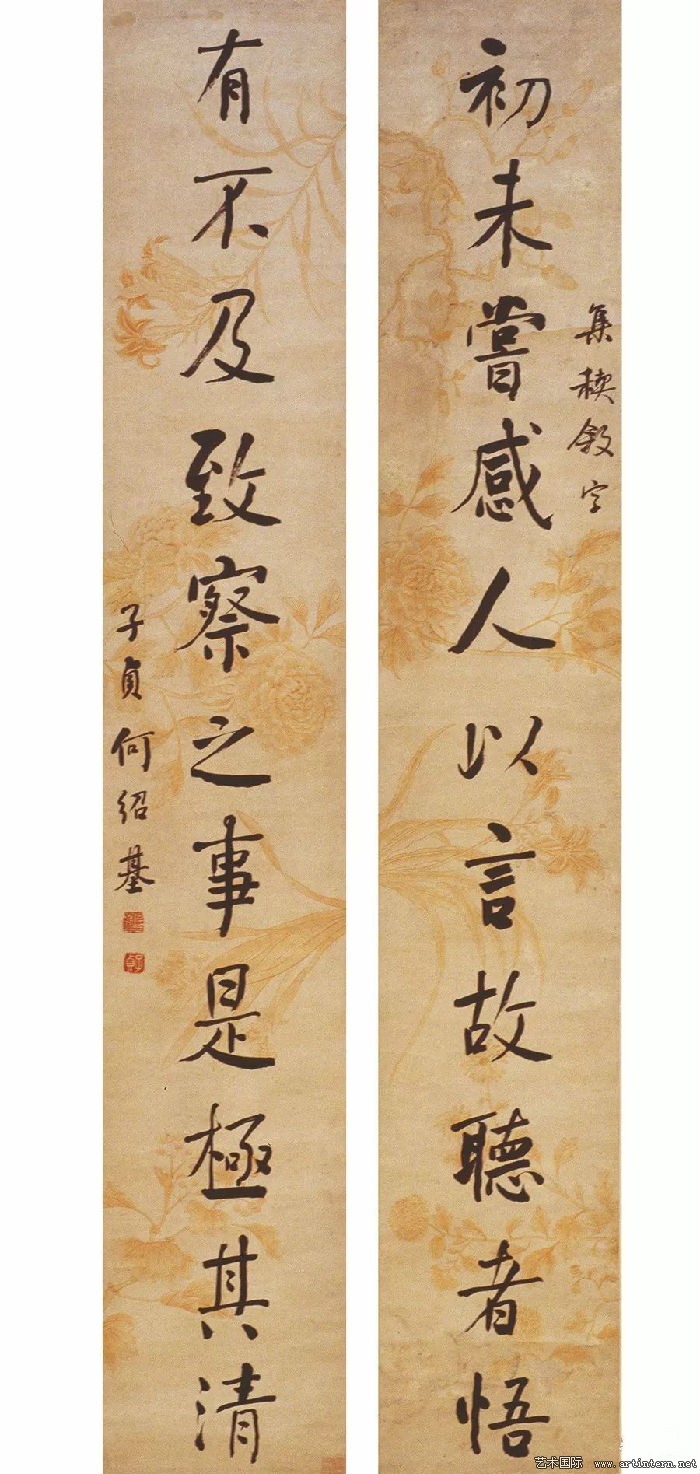 集禊叙字
初未嘗感人以言故聽者悟
有不及致察之事是極其清
子貞何紹基
艺术国际 www.artintern.net